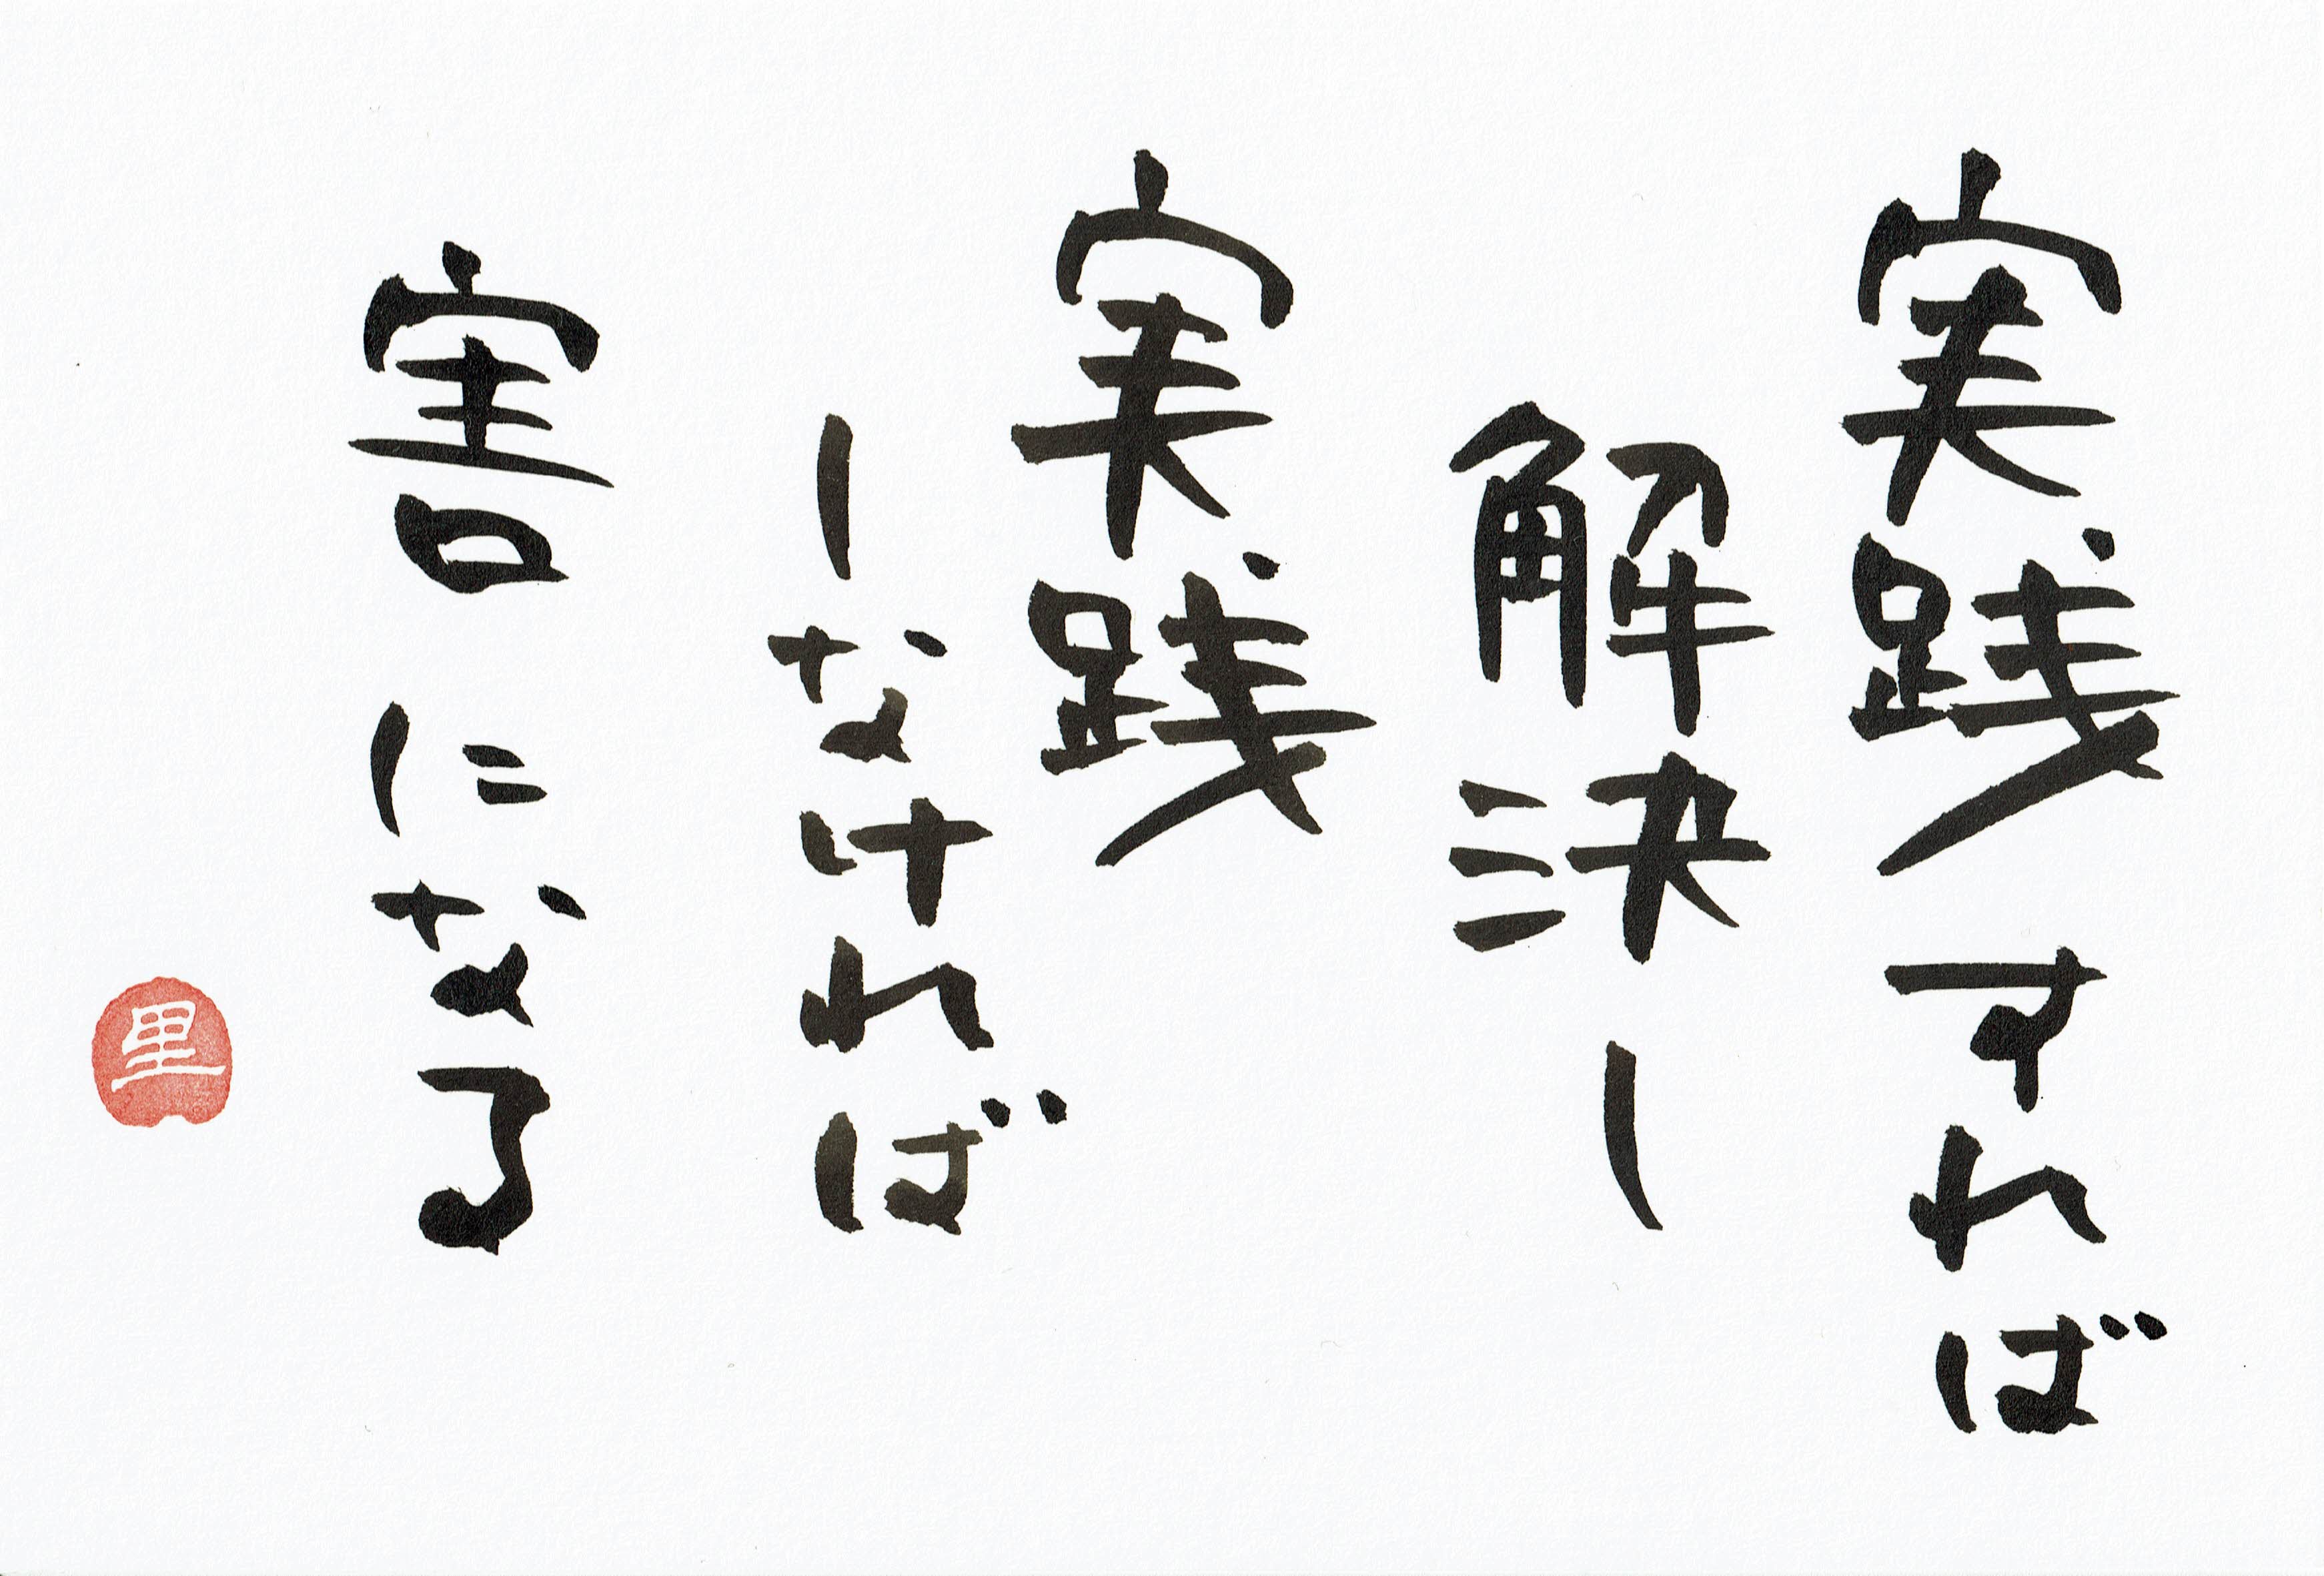 実践すれば
解決し
実践
しなければ
害になる
里